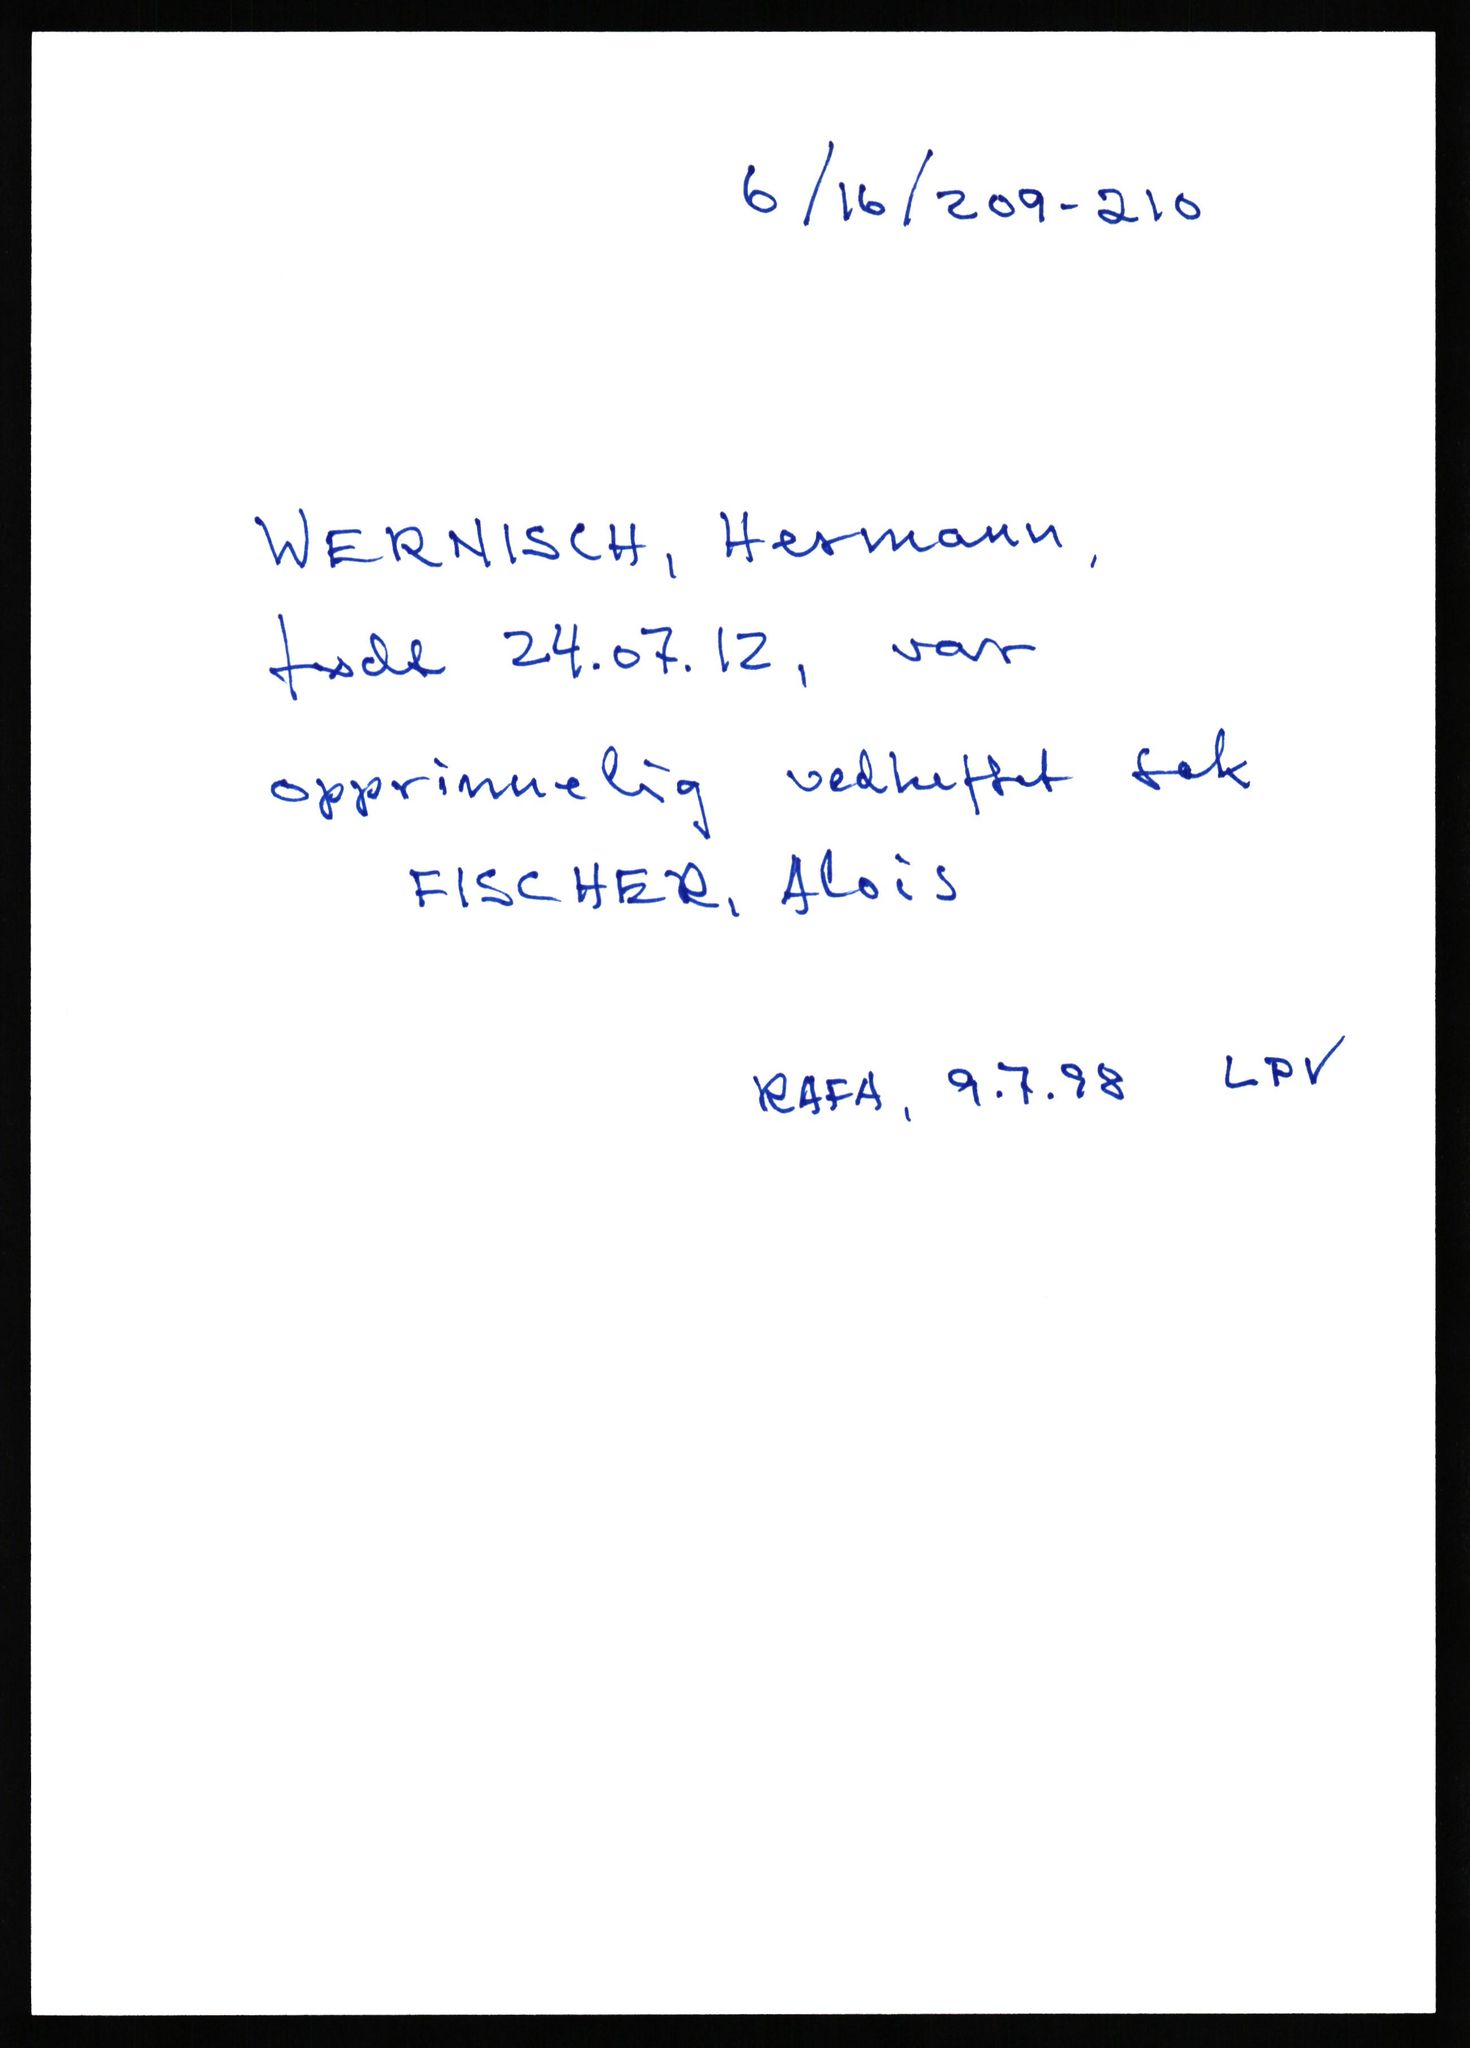 6/16/209-210
WERNISCH, Hermann,
født 24.07.12, var
opprinnelig vedheftet sak
FISCHER, Alois
RAFA, 9.7.98 LPV